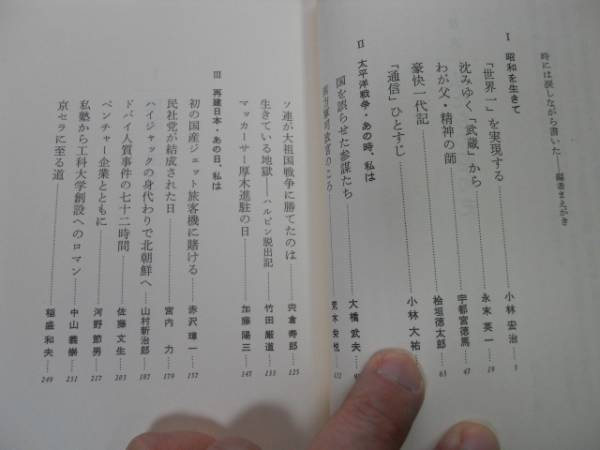 時には涙しながら書いた——編者まえがき
I 昭和を生きて
「世界一」を実現する……小林宏治……3
沈みゆく「武蔵」から……永末英一……19
わが父・精神の師……宇都宮徳馬……47
豪快一代記……桧垣徳太郎……63
「通信」ひとすじ……小林大祐
II 太平洋戦争・あの時、私は
国を誤らせた参謀たち……大橋武夫
ソ連が大祖国戦争に勝てたのは……宍倉寿郎……125
生きている地獄——ハルビン脱出記……竹田厳道……133
マッカーサー厚木進駐の日……加藤陽三……145
III 再建日本・あの日、私は
初の国産ジェット旅客機に賭ける……赤沢璋一……157
民社党が結成された日……宮内力……179
ハイジャックの身代わりで北朝鮮へ……山村新治郎……197
ドバイ人質事件の七十二時間……佐藤文生……203
ベンチャー企業とともに……河野節男……217
私塾から工科大学創設へのロマン……中山義崇……231
京セラに至る道……稲盛和夫……249